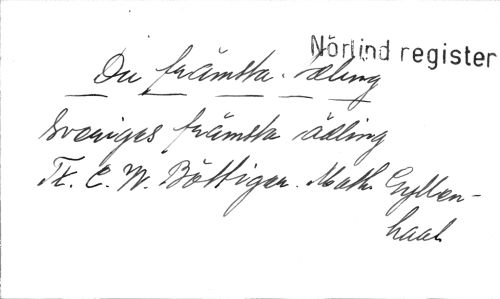 Nörlind register
Du främsta ädling
Sveriges främste ädling
Tt. C. W. Böttiger. Math. Gyllen-
haal